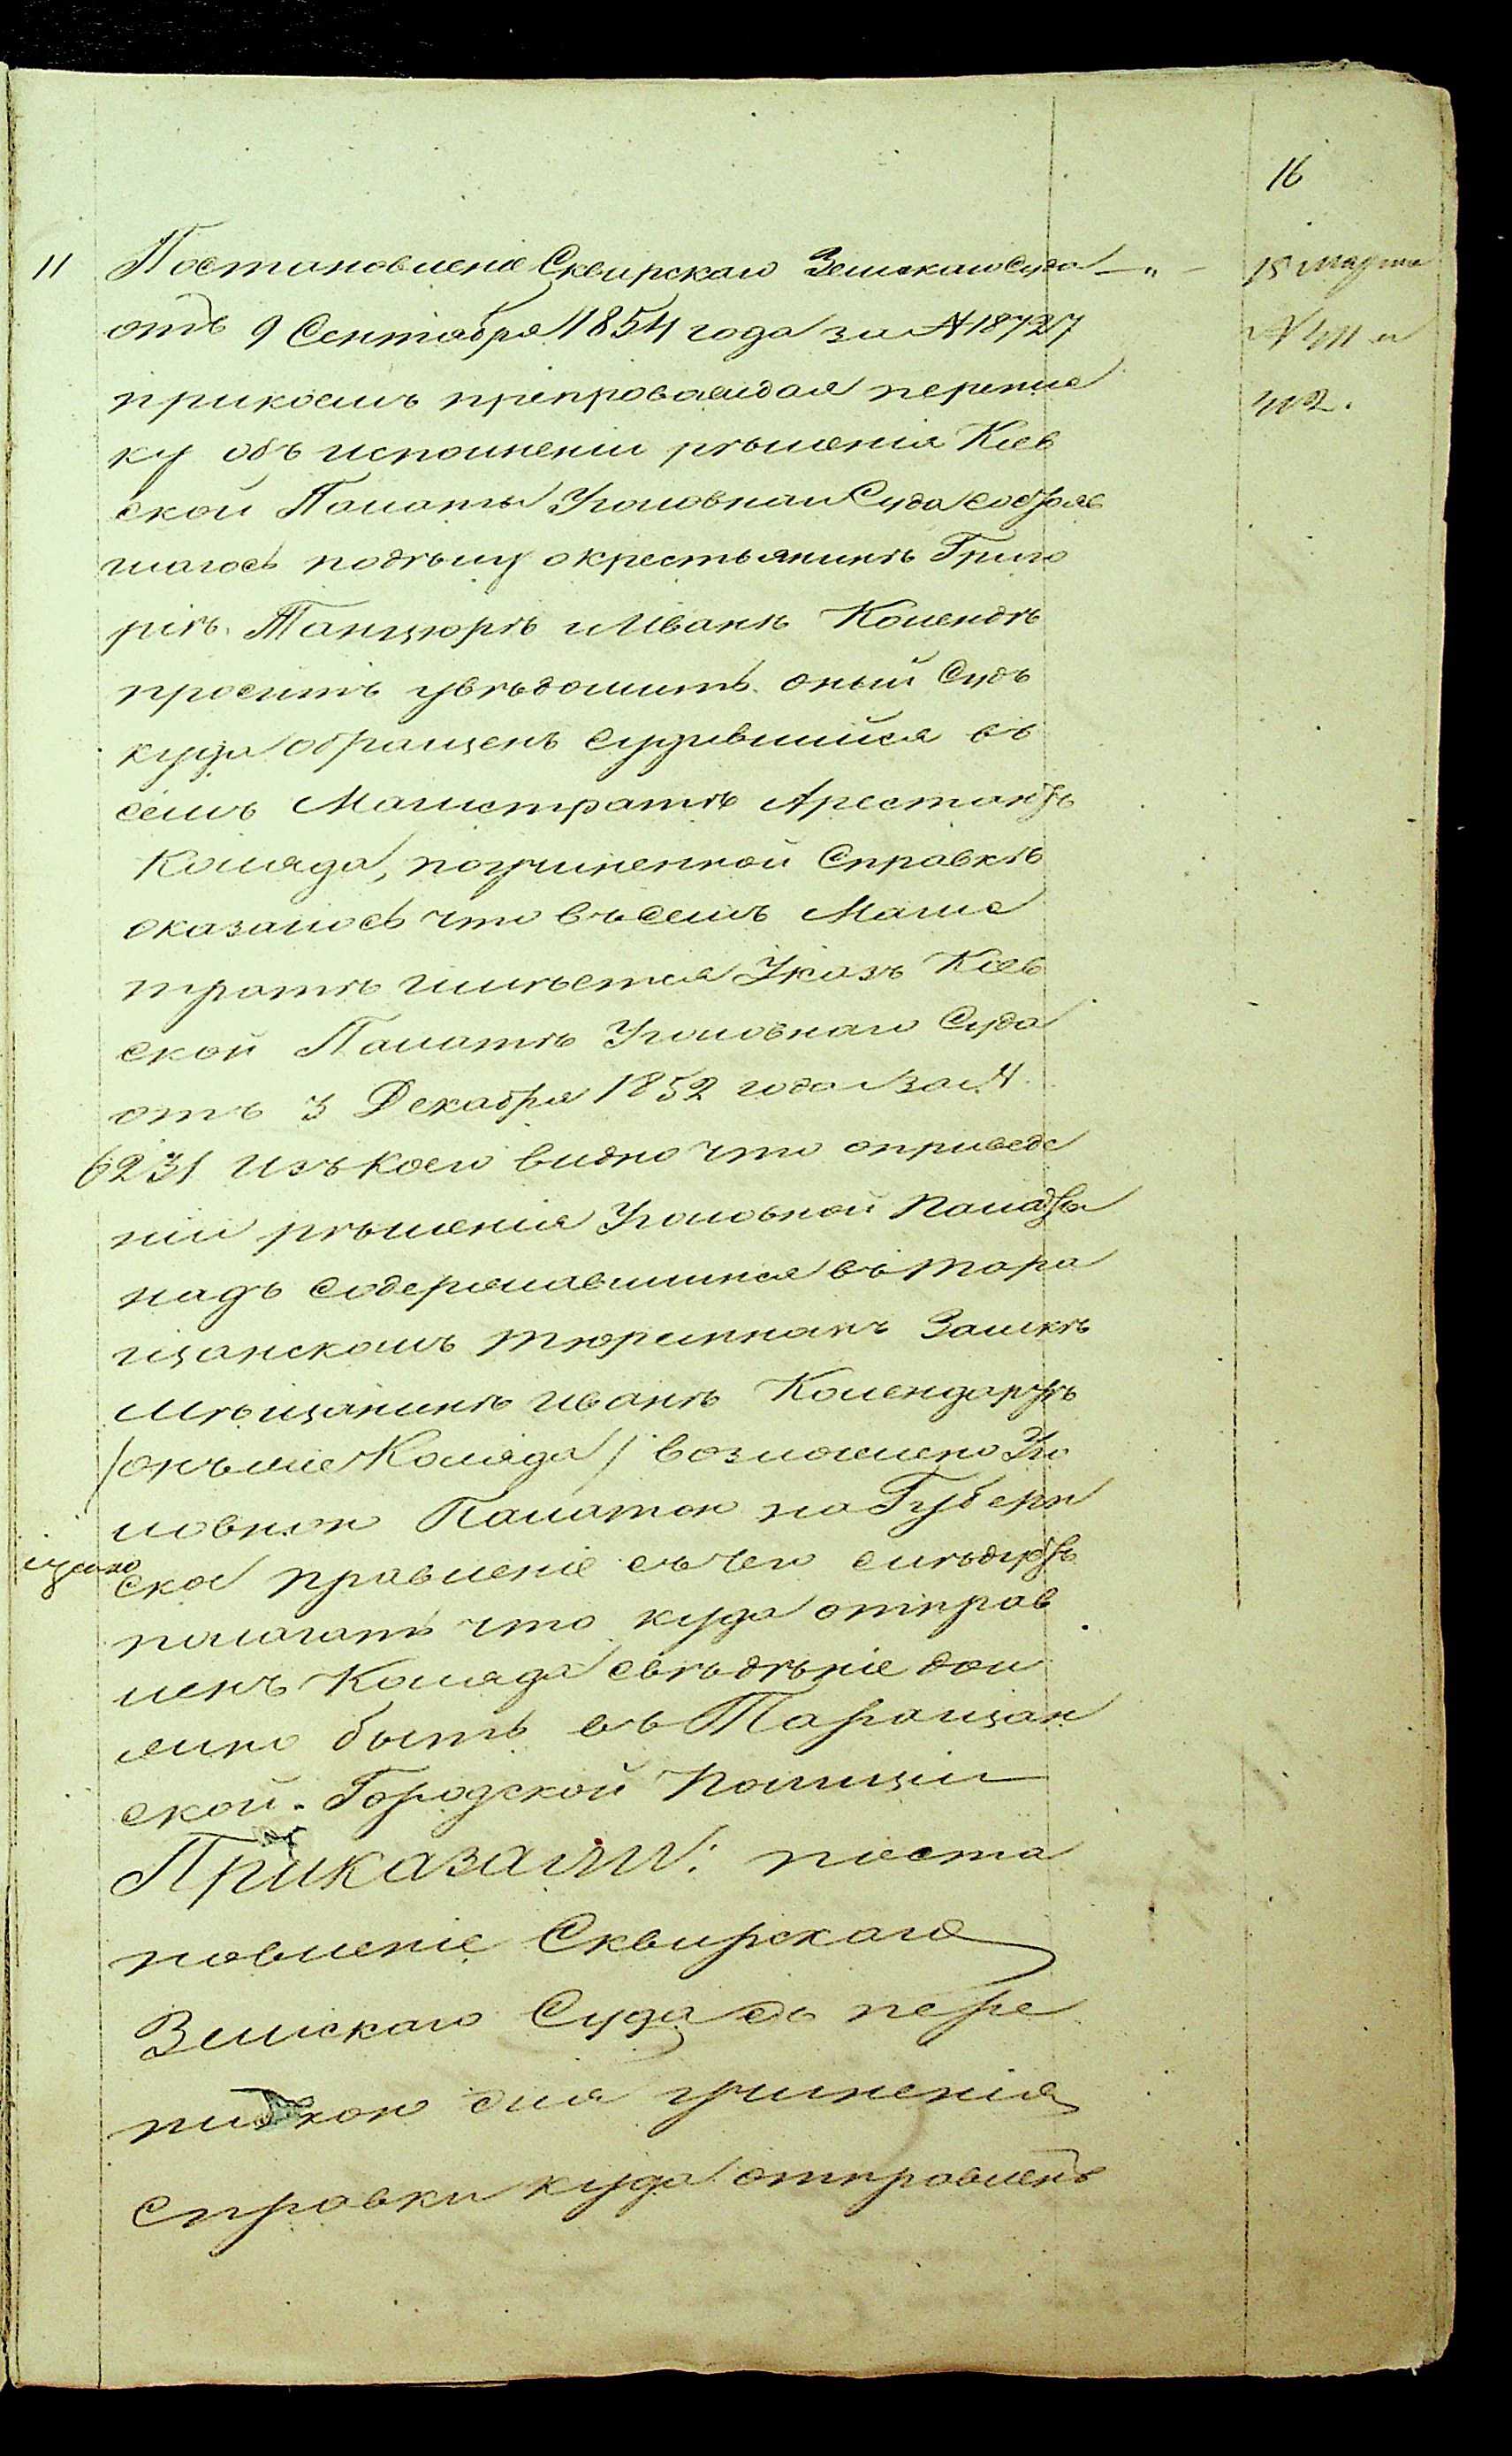 16
11 Постановленіе Сквирскаго Земскаго Суда — " — 15 марта
отъ 9 Сентября 1854 года за № 18727 № 411 и
прикоемъ препровождая перепис 412.
ку объ исполненіи рѣшенія Кіев
ской Палаты Уголовнаго Суда состояв
шагось подѣлу окрестьянинѣ Григо
ріѣ Танцюрѣ и Иванѣ Колендѣ
проситъ увѣдомить оный Судъ
куда обращенъ судившійся въ
семъ Магистратѣ Арестантъ
Коляда, поучиненной Справкѣ
оказалось что въ семъ Магис
тратѣ имѣется Указъ Кіев
ской Палатѣ Уголовнаго Суда
отъ 3 Декабря 1852 года за №
6231 изъ коего видно что оприведе
ніи рѣшенія Уголовной Палаты
надъ содержавшимся въ Тара
щанскомъ тюремномъ Замкѣ
Мѣщанинѣ Иванѣ Колендарѣ
/онъ же Коляда/ возложено Уго
ловною Палатою на Губерн
ское правленіе съ чего слѣдуетъ
полагать что куда отправ
ленъ Коляда свѣдѣніе дол
жно быть въ Таращан
ской Городской Полиціи
Приказали: поста
новленіе Сквирскаго
Земскаго Суда съ пере
пискою для учиненія
справки куда отправленъ